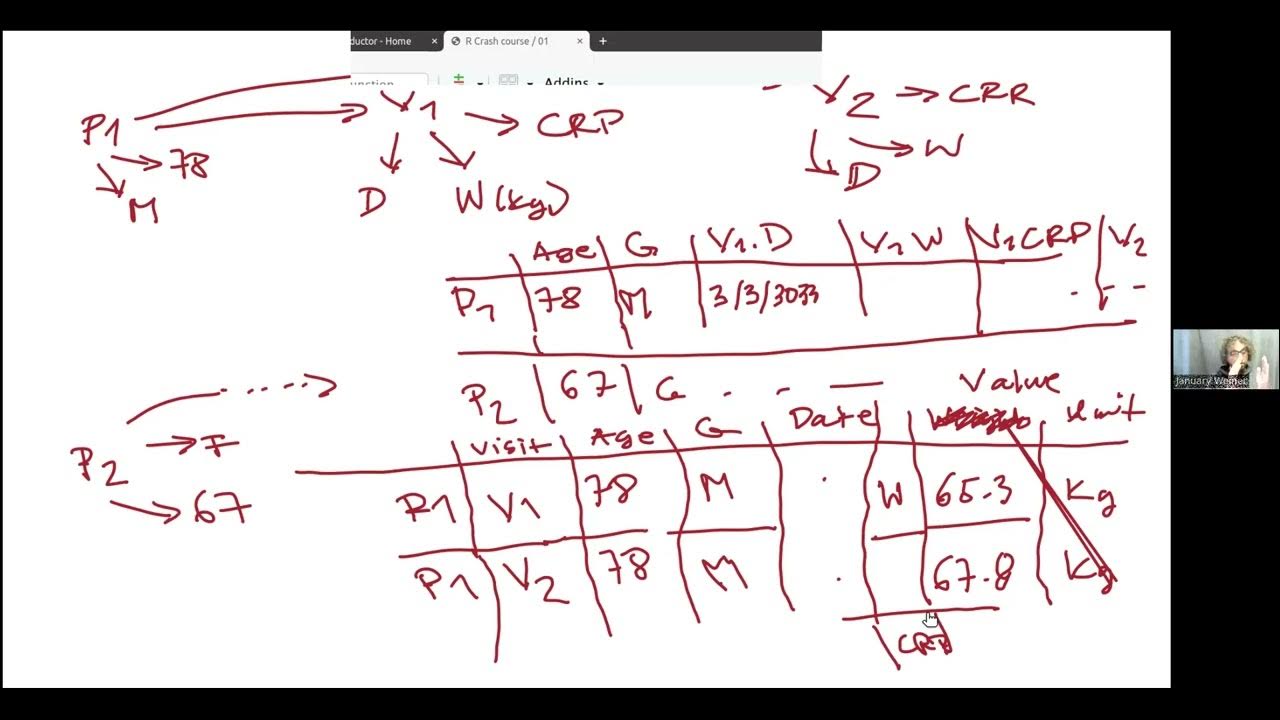 ductor - Home × R Crash course / 01 × +
unction Addins
V2 → CRR
P1 V1 → CRP
→ 78 → W
M D W(kg) D
Age G V1.D V1 W V1 CRP V2
P1 78 M 3/3/3033 . - -
P2 67 G . - —
Value
Visit Age G Date Unit
P2 → F
→ 67
P1 V1 78 M . W 65.3 Kg
P1 V2 78 M . 67.8 Kg
CRP
January Weiner